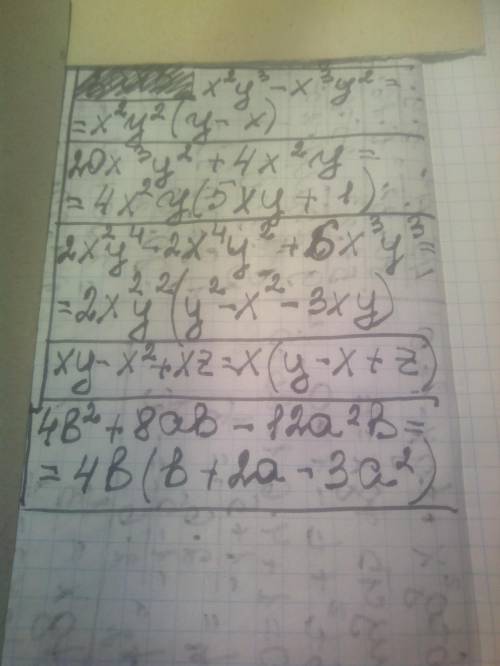 x²y³ - x³y² =
= x²y² (y - x)
20x³y² + 4x²y =
= 4x²y(5xy + 1)
2x²y⁴ - 2x⁴y² + 6x³y³ =
= 2x²y² (y² - x² - 3xy)
xy - x² + xz = x(y - x + z)
4b² + 8ab - 12a²b =
= 4b(b + 2a - 3a²)